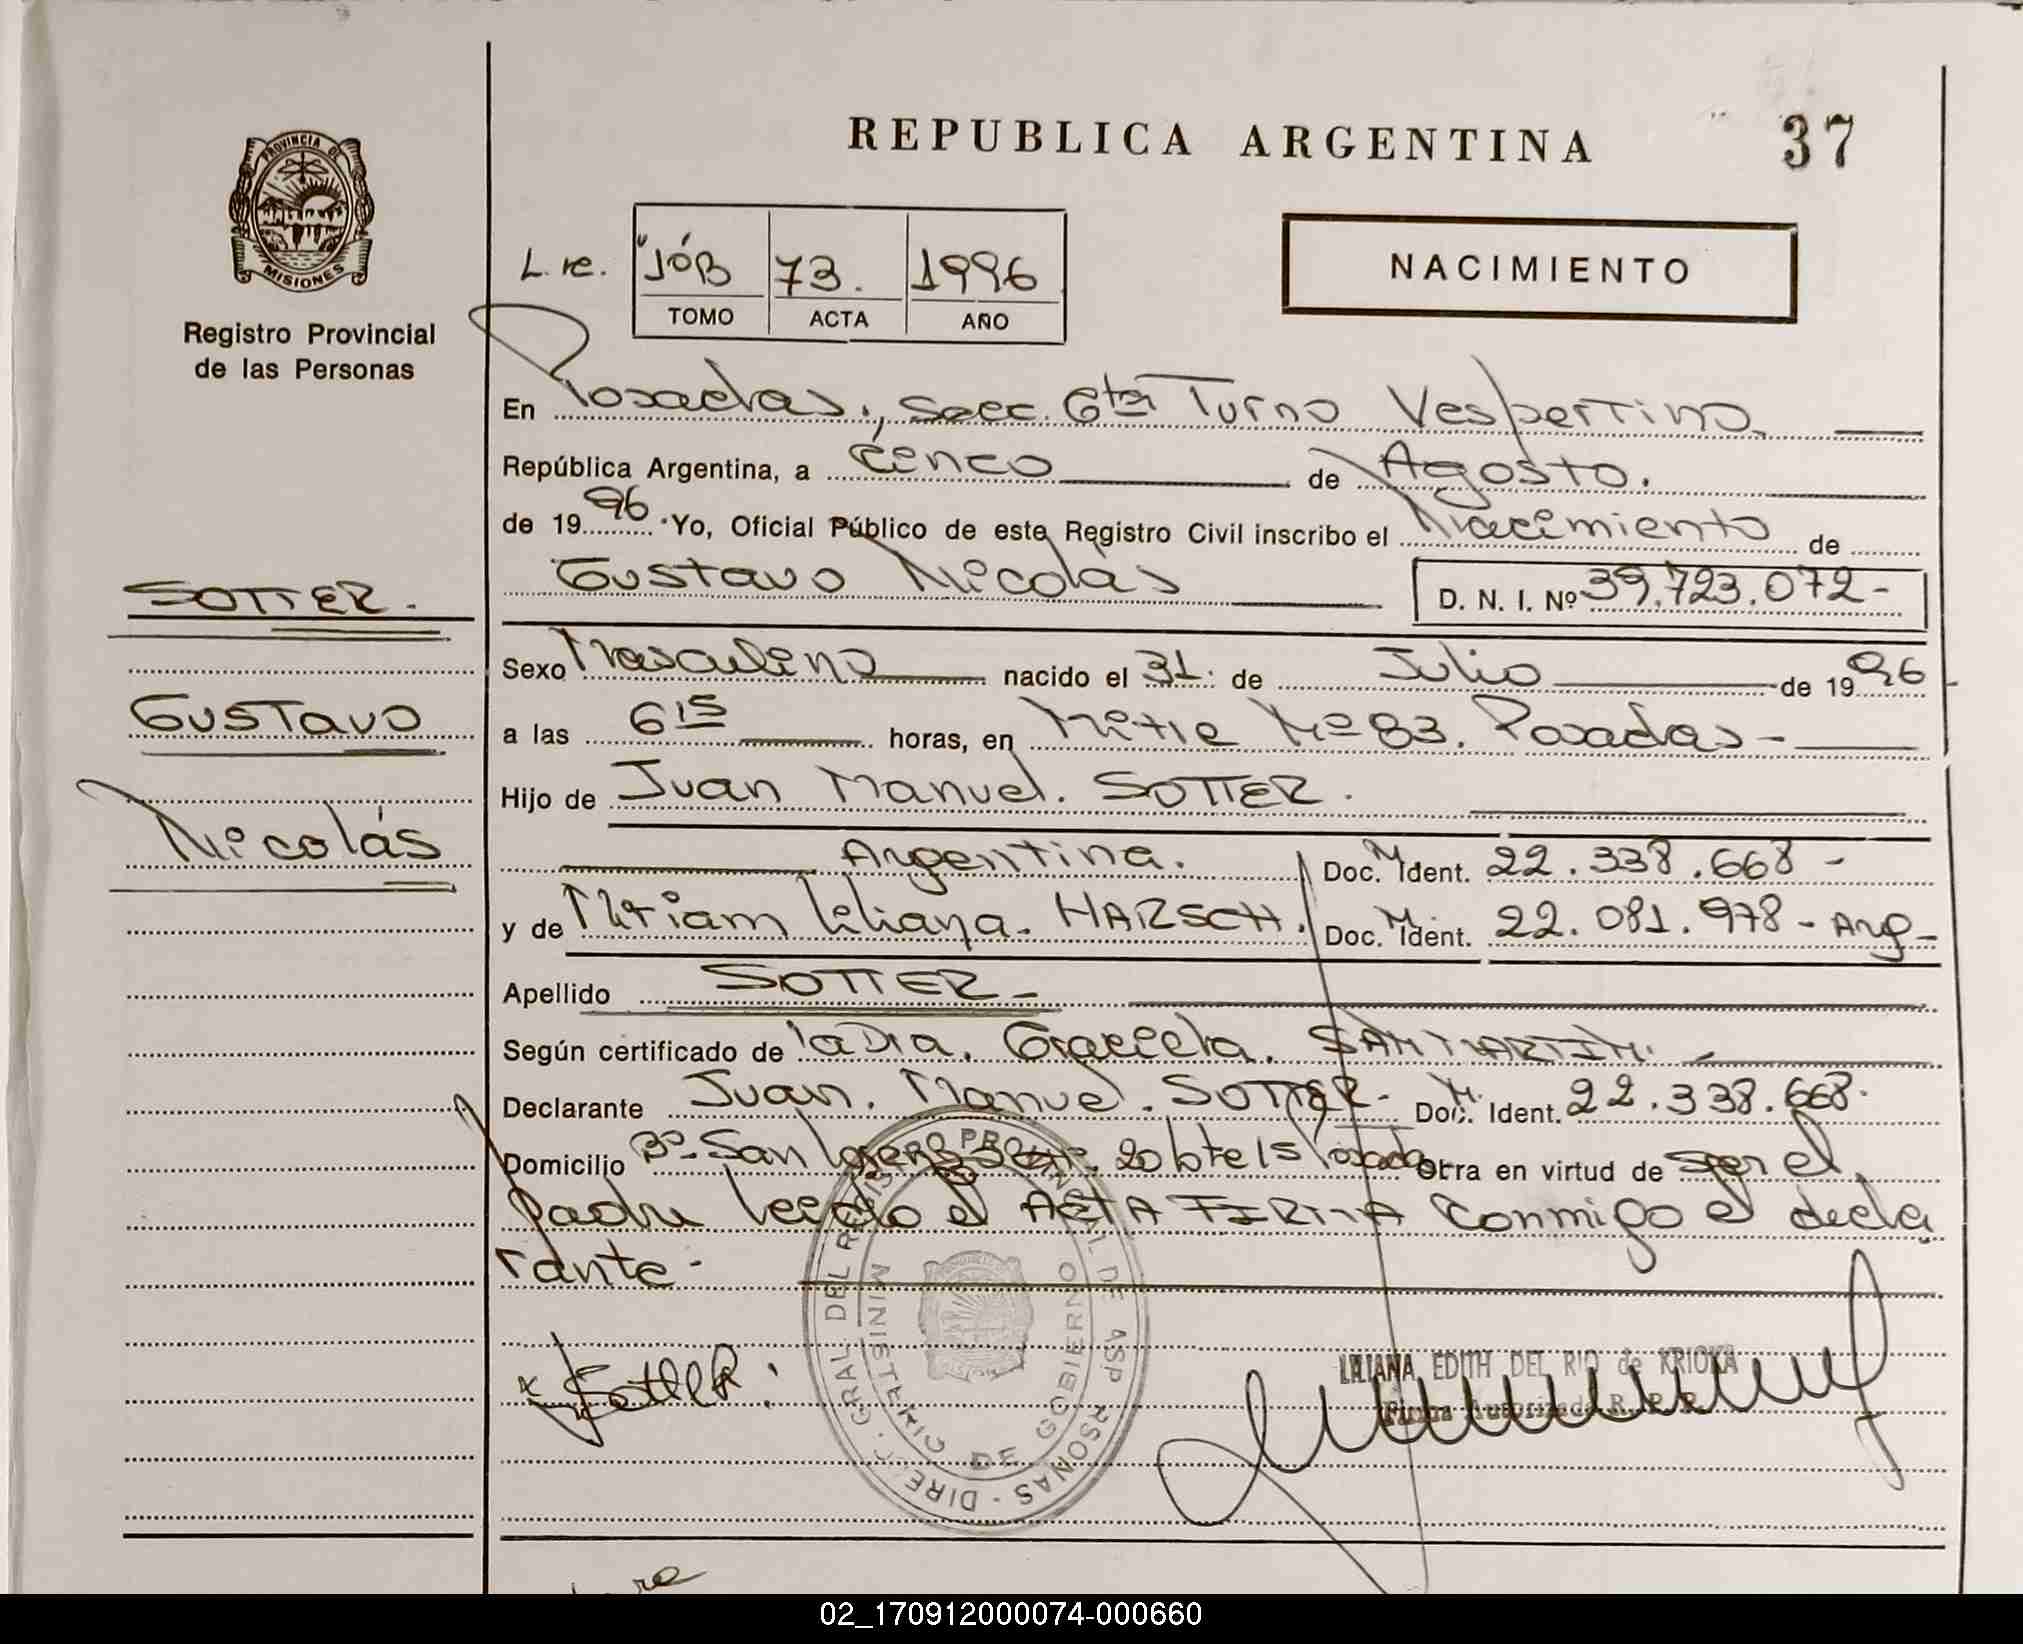 REPUBLICA ARGENTINA
37
PROVINCIA DE
MISIONES
Registro Provincial
de las Personas
L. re. "JÓB 73. 1996
TOMO ACTA AÑO
NACIMIENTO
En Posadas, Secc. 6ta Turno Vespertino
República Argentina, a cinco de Agosto.
de 1996 Yo, Oficial Público de este Registro Civil inscribo el Nacimiento de
Gustavo Nicolás D. N. I. Nº 39.723.072-
SOTTER.
Gustavo
Nicolás
Sexo Masculino nacido el 31 de Julio de 1996
a las 6 15 horas, en Mitre Nº 83. Posadas-
Hijo de Juan Manuel. SOTTER.
Argentina. Doc. M. Ident. 22.338.668-
y de Miriam Liliana. HARSCH. Doc. M. Ident. 22.081.978- Arg-
Apellido SOTTER-
Según certificado de la Dra. Graciela. SAN MARTIN.
Declarante Juan. Manuel. SOTTER- Doc. M. Ident. 22.338.668.
Domicilio Bº San Lorenzo 20 lote 15 Posadas Obra en virtud de ser el
padre leido el ACTA FIRMA conmigo el decla
rante-
Sotter
DIREC. GRAL DEL REGIS PROVINCIAL DE LAS PERSONAS
MINISTERIO DE GOBIERNO
LILIANA EDITH DEL RIO de KRIOKA
Firma Autorizada R. P. P.
02_170912000074-000660